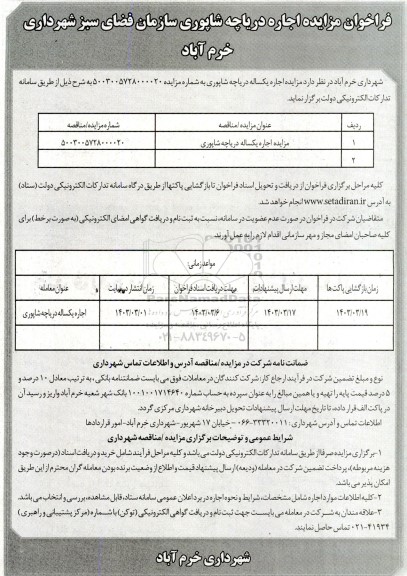 فراخوان مزایده اجاره دریاچه شاپوری سازمان فضای سبز شهرداری
خرم آباد
شهرداری خرم آباد در نظر دارد مزایده اجاره یکساله دریاچه شاپوری به شماره مزایده ۵۰۰۳۰۰۵۷۲۸۰۰۰۰۲۰ به شرح ذیل از طریق سامانه
تدارکات الکترونیکی دولت برگزار نماید.
ردیف عنوان مزایده/مناقصه شماره مزایده/مناقصه
۱ مزایده اجاره یکساله دریاچه شاپوری ۵۰۰۳۰۰۵۷۲۸۰۰۰۰۲۰
۲
کلیه مراحل برگزاری فراخوان از دریافت و تحویل اسناد فراخوان تا بازگشایی پاکتها از طریق درگاه سامانه تدارکات الکترونیکی دولت (ستاد)
به آدرس www.setadiran.ir انجام خواهد شد.
متقاضیان شرکت در فراخوان در صورت عدم عضویت در سامانه، نسبت به ثبت نام و دریافت گواهی امضای الکترونیکی (به صورت برخط) برای
کلیه صاحبان امضای مجاز و مهر سازمانی اقدام لازم را به عمل آورند.
مواعد زمانی:
زمان بازگشایی پاکت ها مهلت ارسال پیشنهادات مهلت دریافت اسناد فراخوان زمان انتشار در سایت عنوان معامله
۱۴۰۳/۰۳/۱۹ ۱۴۰۳/۰۳/۱۷ ۱۴۰۳/۰۳/۶ ۱۴۰۳/۰۳/۰۱ اجاره یکساله دریاچه شاپوری
۰۲۱-۸۸۳۴۹۶۷۰-۵
ضمانت نامه شرکت در مزایده/مناقصه آدرس و اطلاعات تماس شهرداری
نوع و مبلغ تضمین شرکت در فرآیند ارجاع کار: شرکت کنندگان در معاملات فوق می بایست ضمانتنامه بانکی، به ترتیب معادل ۱۰ درصد و
۵ درصد قیمت پایه را تهیه و یا همین مبالغ را به عنوان سپرده به حساب شماره ۱۰۰۱۰۰۱۷۱۴۶۴۰ بانک شهر شعبه خرم آباد واریز و رسید آن
در پاکت الف قرار داده، تا تاریخ مهلت ارسال پیشنهادات تحویل دبیرخانه شهرداری مرکزی گردد.
اطلاعات تماس و آدرس شهرداری : ۳۳۳۲۰۰۱۱-۰۶۶ - خیابان ۱۷ شهریور - شهرداری خرم آباد - امور قراردادها
شرایط عمومی و توضیحات برگزاری مزایده/مناقصه شهرداری
۱-برگزاری مزایده صرفا از طریق سامانه تدارکات الکترونیکی دولت می باشد و کلیه مراحل فرآیند شامل خرید و دریافت اسناد (در صورت وجود
هزینه مربوطه)، پرداخت تضمین شرکت در معامله (ودیعه) ارسال پیشنهاد قیمت و اطلاع از وضعیت برنده بودن معامله گران محترم از این طریق
امکان پذیر می باشد.
۲-کلیه اطلاعات موارد اجاره شامل مشخصات، شرایط و نحوه اجاره در برد اعلان عمومی سامانه ستاد، قابل مشاهده، بررسی و انتخاب می باشد.
۳-علاقه مندان به شرکت در معامله می بایست جهت ثبت نام و دریافت گواهی الکترونیکی (توکن) با شماره (مرکز پشتیبانی و راهبری)
۴۱۹۳۴-۰۲۱ تماس حاصل نمایند.
شهرداری خرم آباد